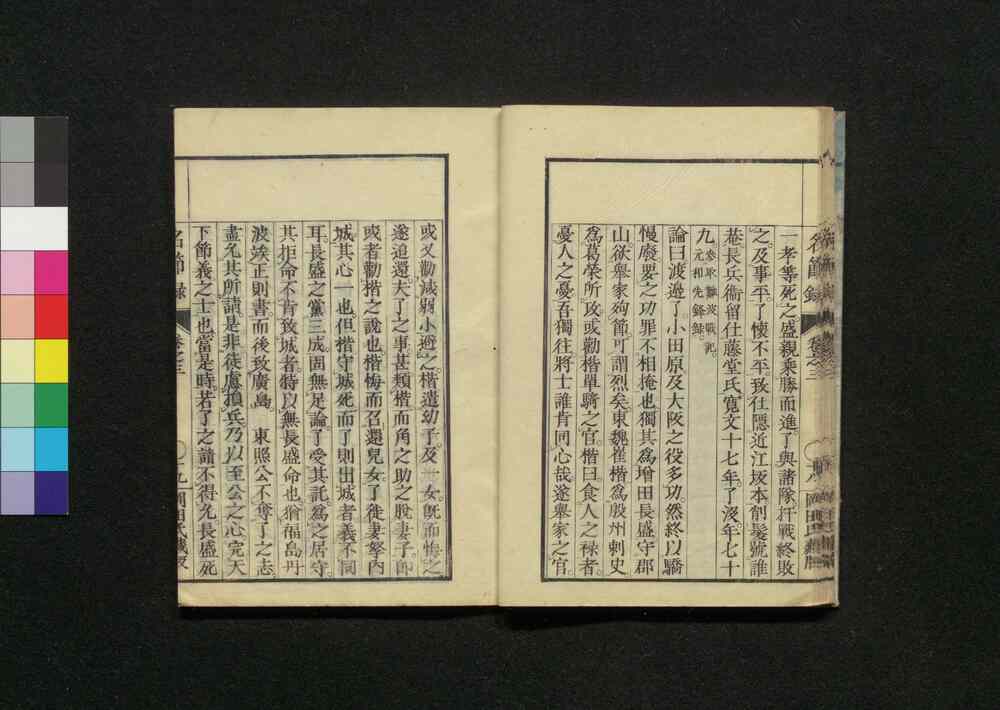 一孝等死之盛親乘勝而進了與諸隊扞戰終敗
之及事平了懷不平致仕隱近江坂本削髮號誰
菴長兵衞留仕藤堂氏寬文十七年了沒年七十
九
參取難波戰記
元和先鋒録
論曰渡邊了小田原及大阪之役多功然終以驕
慢廢要之功罪不相掩也獨其爲增田長盛守郡
山欲舉家殉節可謂烈矣東魏崔楷爲殷州刺史
爲葛榮所攻或勸楷單騎之官楷曰食人之祿者
憂人之憂吾獨往將士誰肯同心哉遂舉家之官
或又勸減弱小避之楷遣幼子及一女既而悔之
遂追還夫了之事甚類楷而角之助之脫妻子卽
或者勸楷之說也楷悔而召還兒女了徙妻孥內
城其心一也但楷守城死而了則出城者義不同
耳長盛之黨三成固無足論了受其託爲之居守
其拒命不肯致城者特以無長盛命也猶福島丹
波竢正則書而後致廣島 東照公不奪了之志
盡允其所請是非徒慮損兵乃以至公之心完天
下節義之士也當是時若了之請不得允長盛死
名節錄 卷之三 九 岡田氏藏版